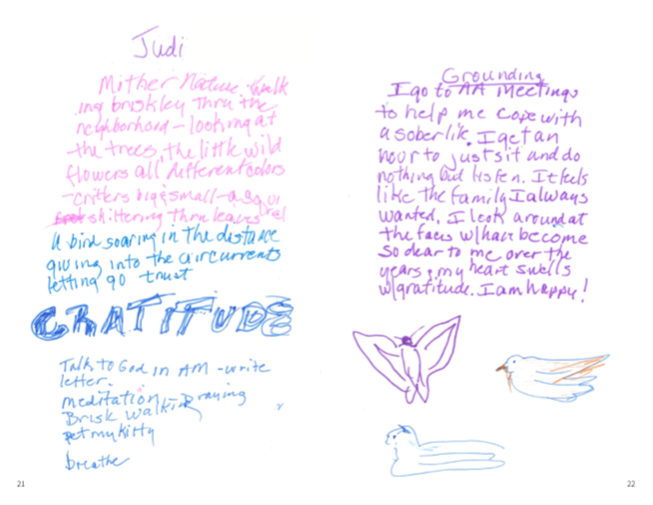 Judi
Mother Nature. Walk
ing briskley thru the
neighborhood - looking at
the trees, the little wild
flowers all different colors
- critters big & small - a squi
rrel
skittering thru leaves
A bird soaring in the distance
giving into the aircurrents
letting go trust
GRATITUDE
Talk to God in AM - write
letter.
meditation - Praying
Brisk walking
pet my kitty
breathe
21
Grounding
I go to AA Meetings
to help me cope with
a sober life. I get an
hour to just sit and do
nothing but listen. It feels
like the family I always
wanted. I look around at
the faces w/have become
so dear to me over the
years & my heart swells
w/gratitude. I am happy!
22